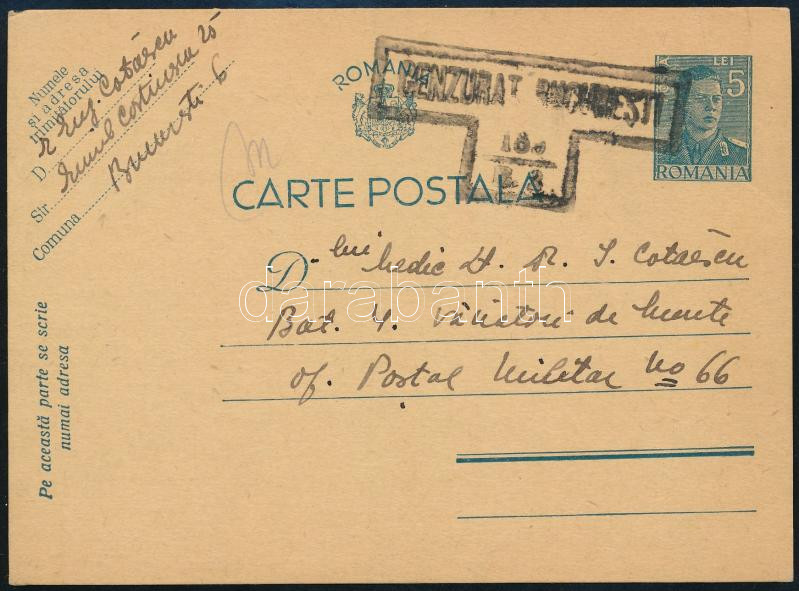 Numele
și adresa
trimițătorului
D. r Eug. Cotăescu
Str. Emil Costinescu 25
Comuna București 6
ROMANIA
CENZURAT BUCUREȘTI
189
B. 2.
LEI 5
ROMANIA
CARTE POSTALA
D lui Medic Lt. Dr. I. Cotaescu
Bat. 4. Vânători de Munte
of. Poștal Militar No 66
Pe această parte se scrie
numai adresa
darabanth